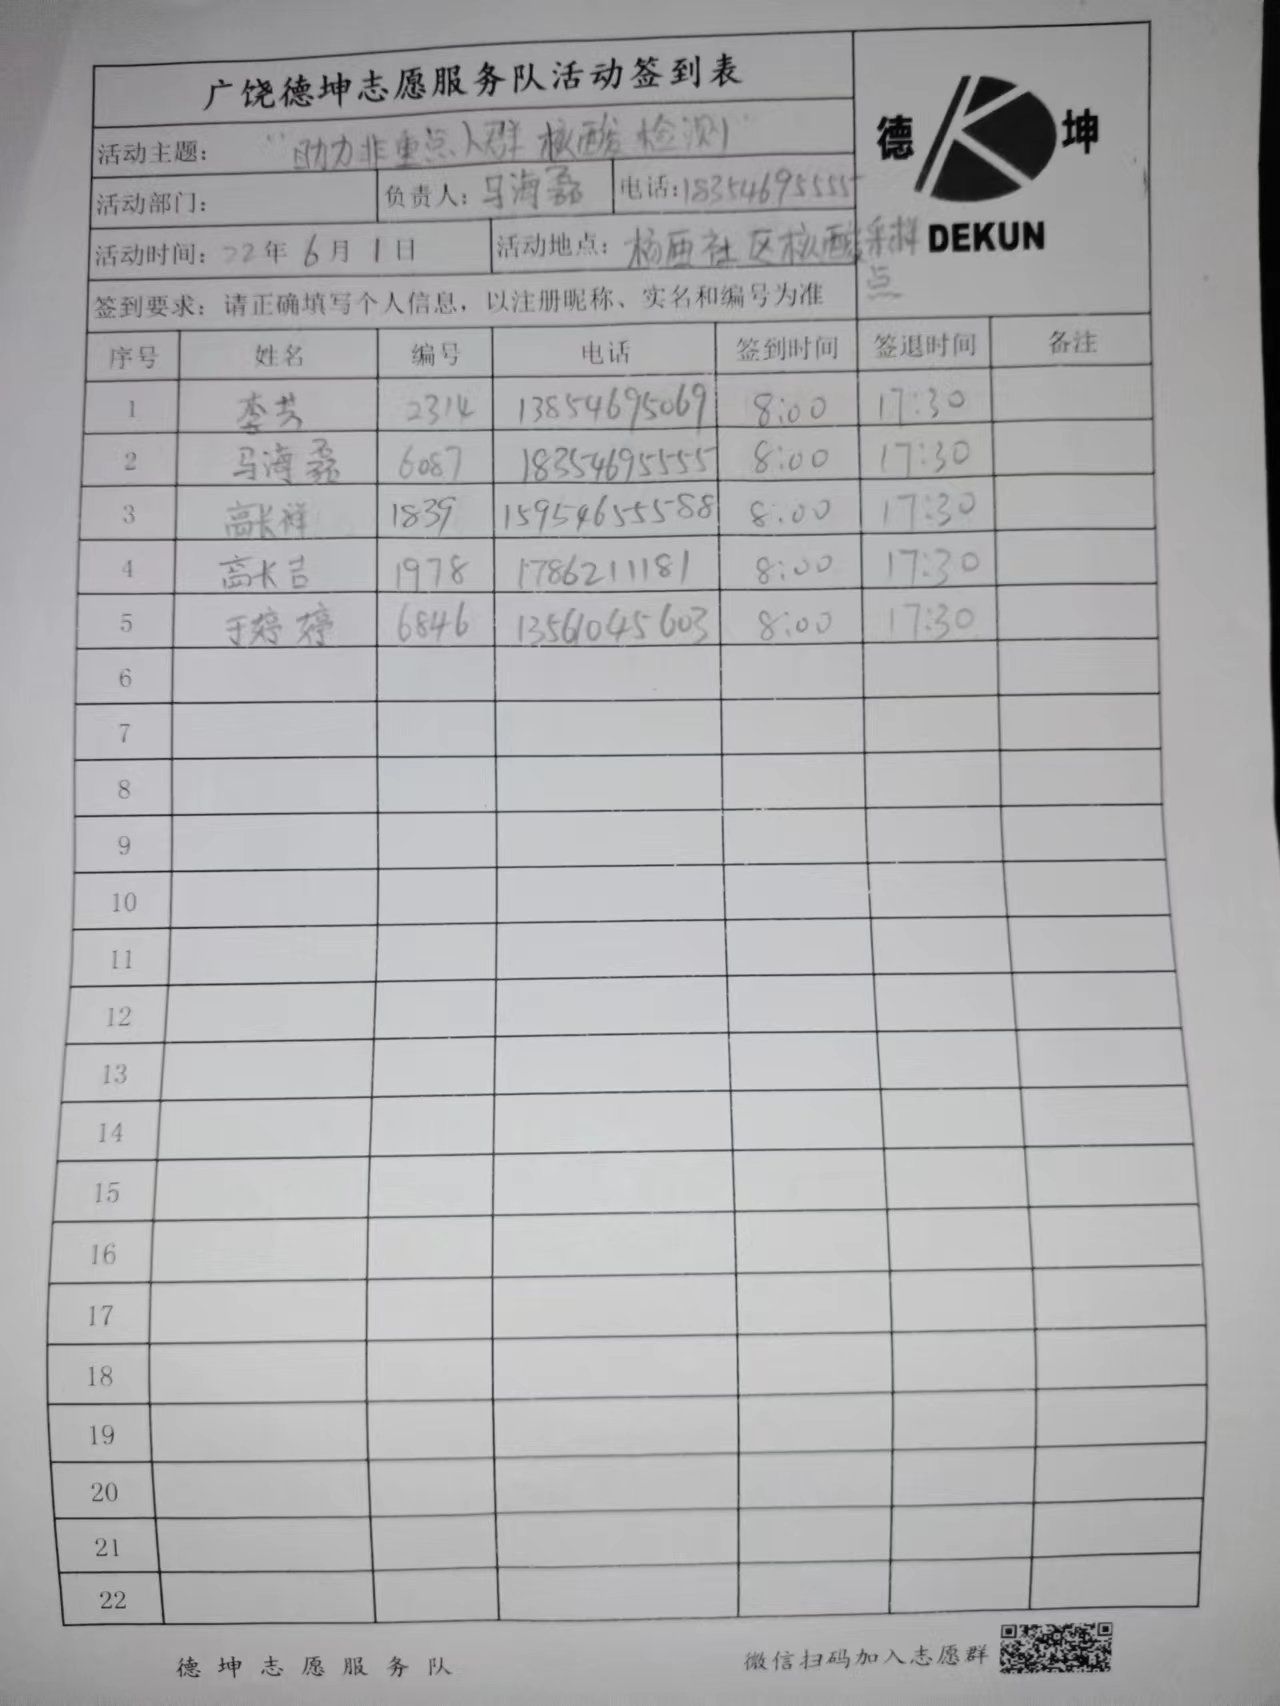 广饶德坤志愿服务队活动签到表
德 坤
DEKUN
活动主题： “助力非重点人群核酸检测”
活动部门： 负责人：马海磊 电话：18354695555
活动时间：22年6月1日 活动地点：杨西社区核酸采样
点
签到要求：请正确填写个人信息，以注册昵称、实名和编号为准
序号 姓名 编号 电话 签到时间 签退时间 备注
1 李芸 2314 13854695069 8:00 17:30
2 马海磊 6087 18354695555 8:00 17:30
3 高长祥 1839 15954655588 8:00 17:30
4 高长吉 1978 17862111181 8:00 17:30
5 于婷婷 6846 13561045603 8:00 17:30
6
7
8
9
10
11
12
13
14
15
16
17
18
19
20
21
22
德坤志愿服务队 微信扫码加入志愿群